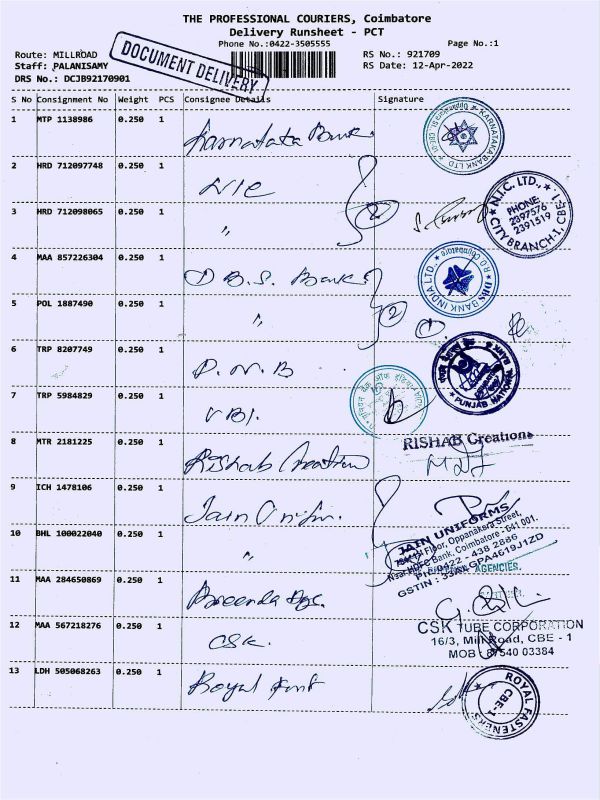 THE PROFESSIONAL COURIERS, Coimbatore
Delivery Runsheet - PCT
Phone No.:0422-3505555
Page No.:1
Route: MILLROAD
RS No.: 921709
Staff: PALANISAMY
RS Date: 12-Apr-2022
DRS No.: DCJB92170901
DOCUMENT DELIVERY
S No Consignment No Weight PCS Consignee Details Signature
1 MTP 1138986 0.250 1 Karnataka Bank
KARNATAKA BANK LTD
2 HRD 712097748 0.250 1 NIC
N.I.C. LTD.,
PHONE:
2397576
2391519
CITY BRANCH-1, CBE-1.
3 HRD 712098065 0.250 1 "
2
4 MAA 857226304 0.250 1 D.B.S. Bank
DBS BANK INDIA LTD
5 POL 1887490 0.250 1 "
2
6 TRP 8207749 0.250 1 P.N.B
PUNJAB NATIONAL BANK
7 TRP 5984829 0.250 1 UBI.
8 MTR 2181225 0.250 1 Rishab Creation
RISHAB Creations
9 ICH 1478106 0.250 1 Jain Unifm.
JAIN UNIFORMS
Floor, Oppanakara Street,
Near HDFC Bank, Coimbatore - 641 001.
PH: 0422 - 438 2886
GSTIN : 33AEGPA4619J1ZD
10 BHL 100022040 0.250 1 "
AGENCIES.
11 MAA 284650869 0.250 1
12 MAA 567218276 0.250 1 CSK.
CSK TUBE CORPORATION
16/3, Mill Road, CBE - 1
MOB : 87540 03384
13 LDH 505068263 0.250 1 Royal
ROYAL FASTENERS
CBE-1